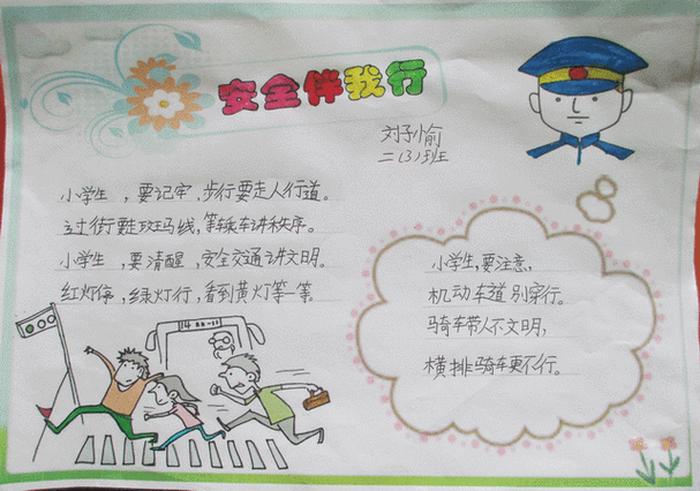 安全伴我行
刘子愉
二(3)班
小学生,要记牢,步行要走人行道。
过街要走斑马线,等乘车讲秩序。
小学生,要清醒,安全交通讲文明。
红灯停,绿灯行,看到黄灯等一等。
小学生,要注意,
机动车道别穿行。
骑车带人不文明,
横排骑车更不行。